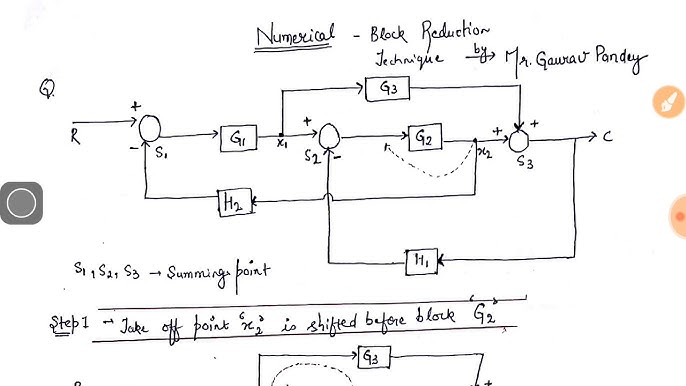 Numerical - Block Reduction
Technique by Mr. Gaurav Pandey
Q.
G3
R + - S1 G1 x1 + - S2 G2 x2 + + S3 C
H2
H1
S1, S2, S3 → Summing point
Step I → Take off point "x2" is shifted before block "G2"
G3
R +